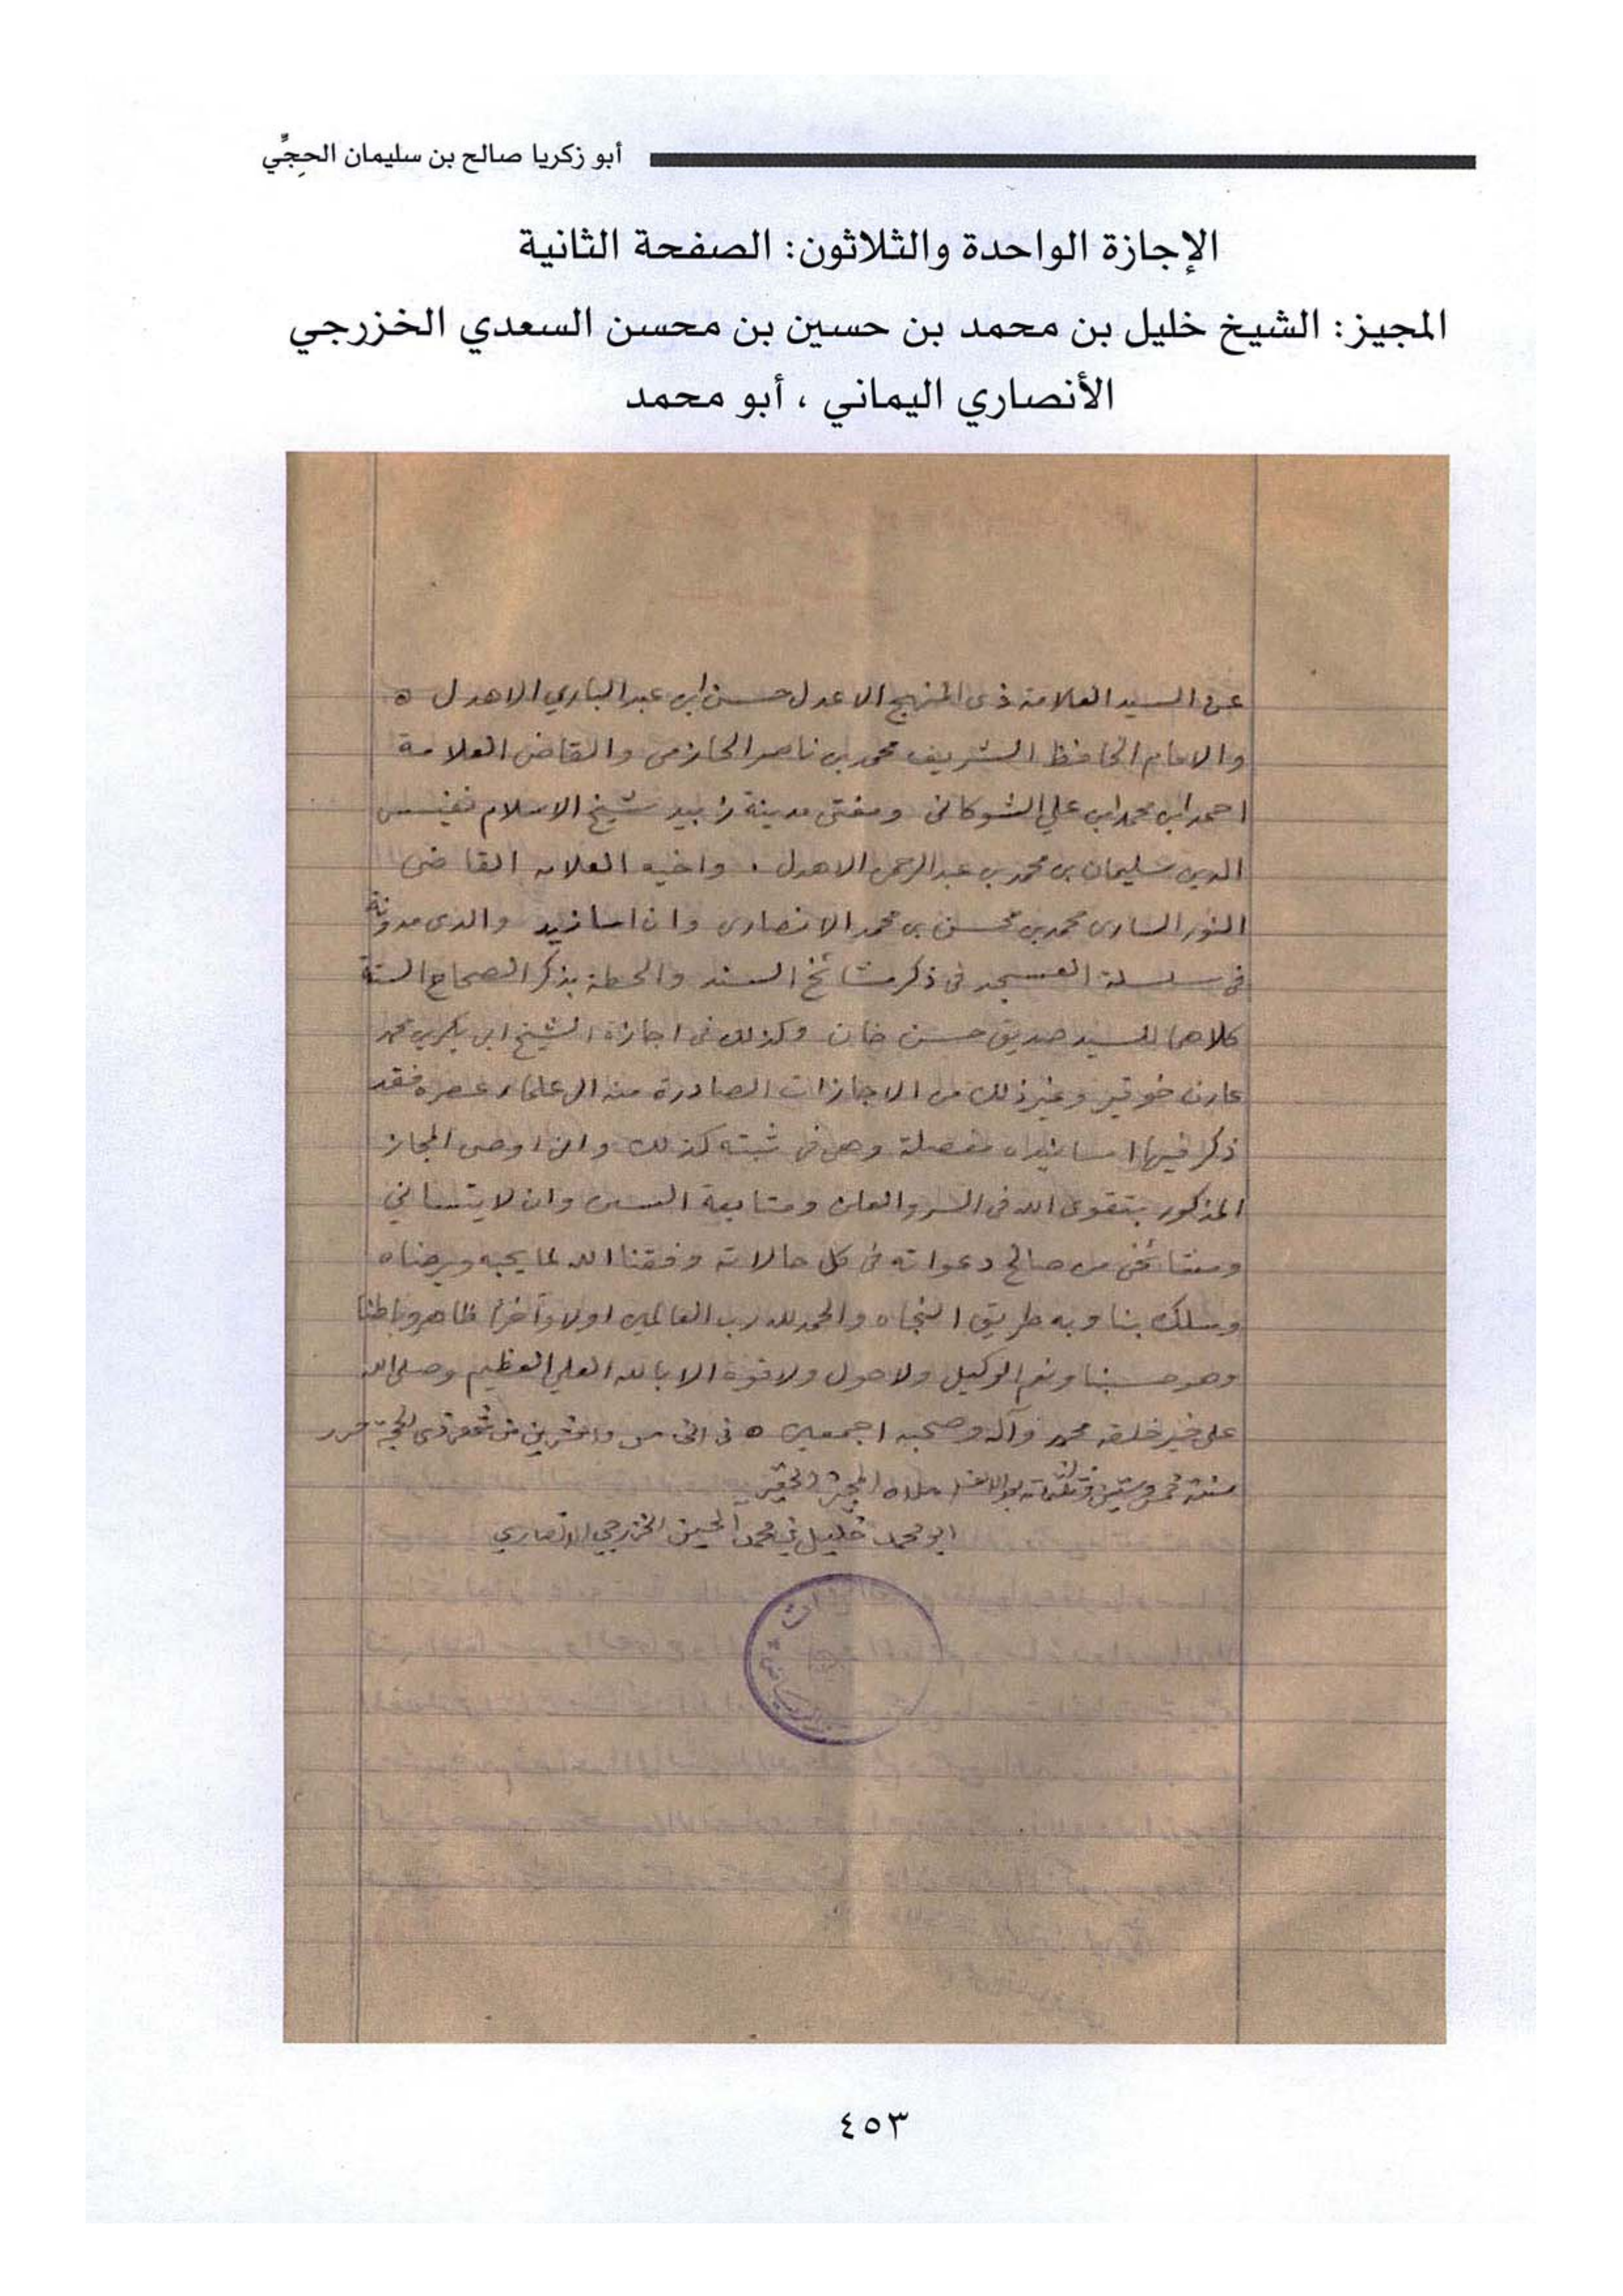 أبو زكريا صالح بن سليمان الحجِّي
الإجازة الواحدة والثلاثون: الصفحة الثانية
المجيز: الشيخ خليل بن محمد بن حسين بن محسن السعدي الخزرجي
الأنصاري اليماني ، أبو محمد
عن السيد العلامة ذى المنهج الاعدل حسن ابن عبد الباري الاهدل ه
والامام الحافظ الشريف محمد بن ناصر الحازمى والقاضى العلامة
احمد ابن محمد ابن علي الشوكانى ومفتى مدينة زبيد شيخ الاسلام نفيس
الدين سليمان بن محمد بن عبد الرحمن الاهدل . واخيه العلامه القاضى
النور السارى محمد بن محسن بن محمد الانصارى وان اسانيد والدى مدونة
فى سلسلة العسجد فى ذكر مشائخ السند والحطة بذكر الصحاح الستة
كلاهما للسيد صديق حسن خان وكذلك فى اجازة الشيخ ابى بكر بن محمد
عارف خوقير وغير ذلك من الاجازات الصادرة منه الى علماء عصره فقد
ذكر فيها اسانيده مفصلة وهى فى ثبته كذلك وانى اوصى المجاز
المذكور بتقوى الله فى السر والعلن ومتابعة السنن وان لا ينسانى
ومشائخى من صالح دعواته فى كل حالاته وفقنا الله لما يحبه ويرضاه
وسلك بنا وبه طريق النجاه والحمد لله رب العالمين اولا وآخرا ظاهر وباطنا
وهو حسبنا ونعم الوكيل ولا حول ولا قوة الا بالله العلي العظيم وصلى الله
على خير خلقه محمد وآله وصحبه اجمعين ه فى الخامس والعشرين من ذى الحجة حرر
سنة خمس وستين وثلثمائة بعد الالف املاه المجيز الحقير
ابو محمد خليل بن محمد الحسين الخزرجي الانصاري
٤٥٣